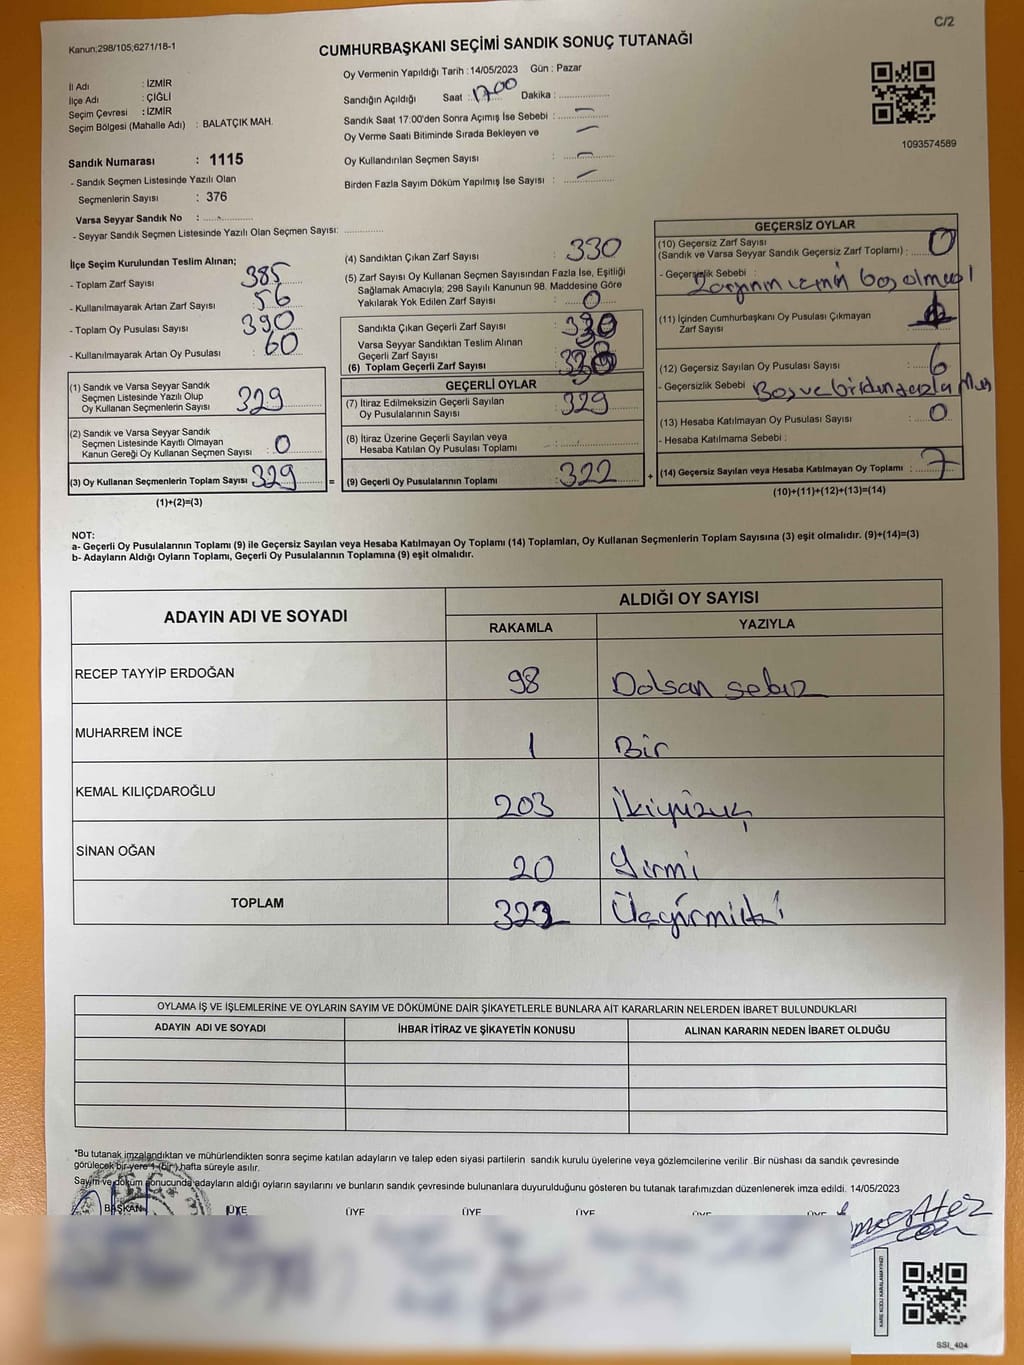 C/2
Kanun:298/105;6271/18-1
CUMHURBAŞKANI SEÇİMİ SANDIK SONUÇ TUTANAĞI
İl Adı : İZMİR
İlçe Adı : ÇİĞLİ
Seçim Çevresi : İZMİR
Seçim Bölgesi (Mahalle Adı) : BALATÇIK MAH.
Sandık Numarası : 1115
- Sandık Seçmen Listesinde Yazılı Olan
Seçmenlerin Sayısı : 376
Varsa Seyyar Sandık No :
- Seyyar Sandık Seçmen Listesinde Yazılı Olan Seçmen Sayısı:
Oy Vermenin Yapıldığı Tarih : 14/05/2023 Gün : Pazar
Sandığın Açıldığı Saat : 17.00 Dakika :
Sandık Saat 17:00'den Sonra Açımış İse Sebebi : —
Oy Verme Saati Bitiminde Sırada Bekleyen ve —
Oy Kullandırılan Seçmen Sayısı : —
Birden Fazla Sayım Döküm Yapılmış İse Sayısı : —
1093574589
İlçe Seçim Kurulundan Teslim Alınan;
- Toplam Zarf Sayısı 385
- Kullanılmayarak Artan Zarf Sayısı 56
- Toplam Oy Pusulası Sayısı 390
- Kullanılmayarak Artan Oy Pusulası 60
(1) Sandık ve Varsa Seyyar Sandık
Seçmen Listesinde Yazılı Olup
Oy Kullanan Seçmenlerin Sayısı 329
(2) Sandık ve Varsa Seyyar Sandık
Seçmen Listesinde Kayıtlı Olmayan
Kanun Gereği Oy Kullanan Seçmen Sayısı 0
(3) Oy Kullanan Seçmenlerin Toplam Sayısı 329
(1)+(2)=(3)
=
(4) Sandıktan Çıkan Zarf Sayısı : 330
(5) Zarf Sayısı Oy Kullanan Seçmen Sayısından Fazla İse, Eşitliği
Sağlamak Amacıyla; 298 Sayılı Kanunun 98. Maddesine Göre
Yakılarak Yok Edilen Zarf Sayısı : 0
Sandıkta Çıkan Geçerli Zarf Sayısı :
Varsa Seyyar Sandıktan Teslim Alınan
Geçerli Zarf Sayısı
(6) Toplam Geçerli Zarf Sayısı
GEÇERLİ OYLAR
(7) İtiraz Edilmeksizin Geçerli Sayılan
Oy Pusulalarının Sayısı : 329
(8) İtiraz Üzerine Geçerli Sayılan veya
Hesaba Katılan Oy Pusulası Toplamı :
(9) Geçerli Oy Pusulalarının Toplamı 322
+
GEÇERSİZ OYLAR
(10) Geçersiz Zarf Sayısı
(Sandık ve Varsa Seyyar Sandık Geçersiz Zarf Toplamı) : 0
- Geçersizlik Sebebi :
boş olması
(11) İçinden Cumhurbaşkanı Oy Pusulası Çıkmayan
Zarf Sayısı
(12) Geçersiz Sayılan Oy Pusulası Sayısı : 6
- Geçersizlik Sebebi Boş ve birden fazla
(13) Hesaba Katılmayan Oy Pusulası Sayısı : 0
- Hesaba Katılmama Sebebi :
(14) Geçersiz Sayılan veya Hesaba Katılmayan Oy Toplamı : 7
(10)+(11)+(12)+(13)=(14)
NOT:
a- Geçerli Oy Pusulalarının Toplamı (9) ile Geçersiz Sayılan veya Hesaba Katılmayan Oy Toplamı (14) Toplamları, Oy Kullanan Seçmenlerin Toplam Sayısına (3) eşit olmalıdır. (9)+(14)=(3)
b- Adayların Aldığı Oyların Toplamı, Geçerli Oy Pusulalarının Toplamına (9) eşit olmalıdır.
ADAYIN ADI VE SOYADI
ALDIĞI OY SAYISI
RAKAMLA YAZIYLA
RECEP TAYYİP ERDOĞAN 98 Dolsan sebiz
MUHARREM İNCE 1 Bir
KEMAL KILIÇDAROĞLU 203 İkiyüzüç
SİNAN OĞAN 20 Yirmi
TOPLAM 322
OYLAMA İŞ VE İŞLEMLERİNE VE OYLARIN SAYIM VE DÖKÜMÜNE DAİR ŞİKAYETLERLE BUNLARA AİT KARARLARIN NELERDEN İBARET BULUNDUKLARI
ADAYIN ADI VE SOYADI İHBAR İTİRAZ VE ŞİKAYETİN KONUSU ALINAN KARARIN NEDEN İBARET OLDUĞU
*Bu tutanak imzalandıktan ve mühürlendikten sonra seçime katılan adayların ve talep eden siyasi partilerin sandık kurulu üyelerine veya gözlemcilerine verilir. Bir nüshası da sandık çevresinde
görülecek bir yere 1 (bir) hafta süreyle asılır.
Sayım ve döküm sonucunda adayların aldığı oyların sayılarını ve bunların sandık çevresinde bulunanlara duyurulduğunu gösteren bu tutanak tarafımızdan düzenlenerek imza edildi. 14/05/2023
BAŞKAN ÜYE ÜYE ÜYE ÜYE ÜYE ÜYE
KARE KODU KARALAMAYINIZ!
SSI_404